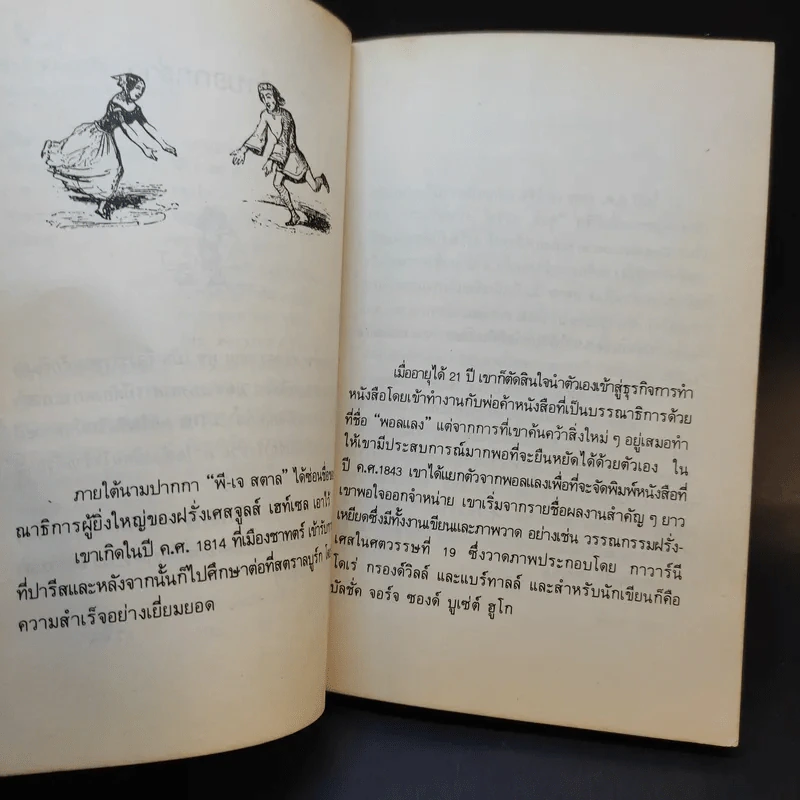 ภายใต้นามปากกา "พี-เจ สตาล" ได้ซ่อนชื่อ
ณาธิการผู้ยิ่งใหญ่ของฝรั่งเศสจูลส์ เฮท์เซล เอาไว้
เขาเกิดในปี ค.ศ. 1814 ที่เมืองชาทตร์ เข้ารับการ
ที่ปารีสและหลังจากนั้นก็ไปศึกษาต่อที่สตราลบูร์ก
ความสำเร็จอย่างเยี่ยมยอด
เมื่ออายุได้ 21 ปี เขาก็ตัดสินใจนำตัวเองเข้าสู่ธุรกิจการทำ
หนังสือโดยเข้าทำงานกับพ่อค้าหนังสือที่เป็นบรรณาธิการด้วย
ที่ชื่อ "พอลแลง" แต่จากการที่เขาค้นคว้าสิ่งใหม่ ๆ อยู่เสมอทำ
ให้เขามีประสบการณ์มากพอที่จะยืนหยัดได้ด้วยตัวเอง ใน
ปี ค.ศ.1843 เขาได้แยกตัวจากพอลแลงเพื่อที่จะจัดพิมพ์หนังสือที่
เขาพอใจออกจำหน่าย เขาเริ่มจากรายชื่อผลงานสำคัญ ๆ ยาว
เหยียดซึ่งมีทั้งงานเขียนและภาพวาด อย่างเช่น วรรณกรรมฝรั่ง-
เศสในศตวรรษที่ 19 ซึ่งวาดภาพประกอบโดย กาวาร์นี
โดเร่ กรองด์วิลล์ และแบร์ทาลล์ และสำหรับนักเขียนก็คือ
บัลซัค จอร์จ ซองด์ บูเซ่ต์ ฮูโก